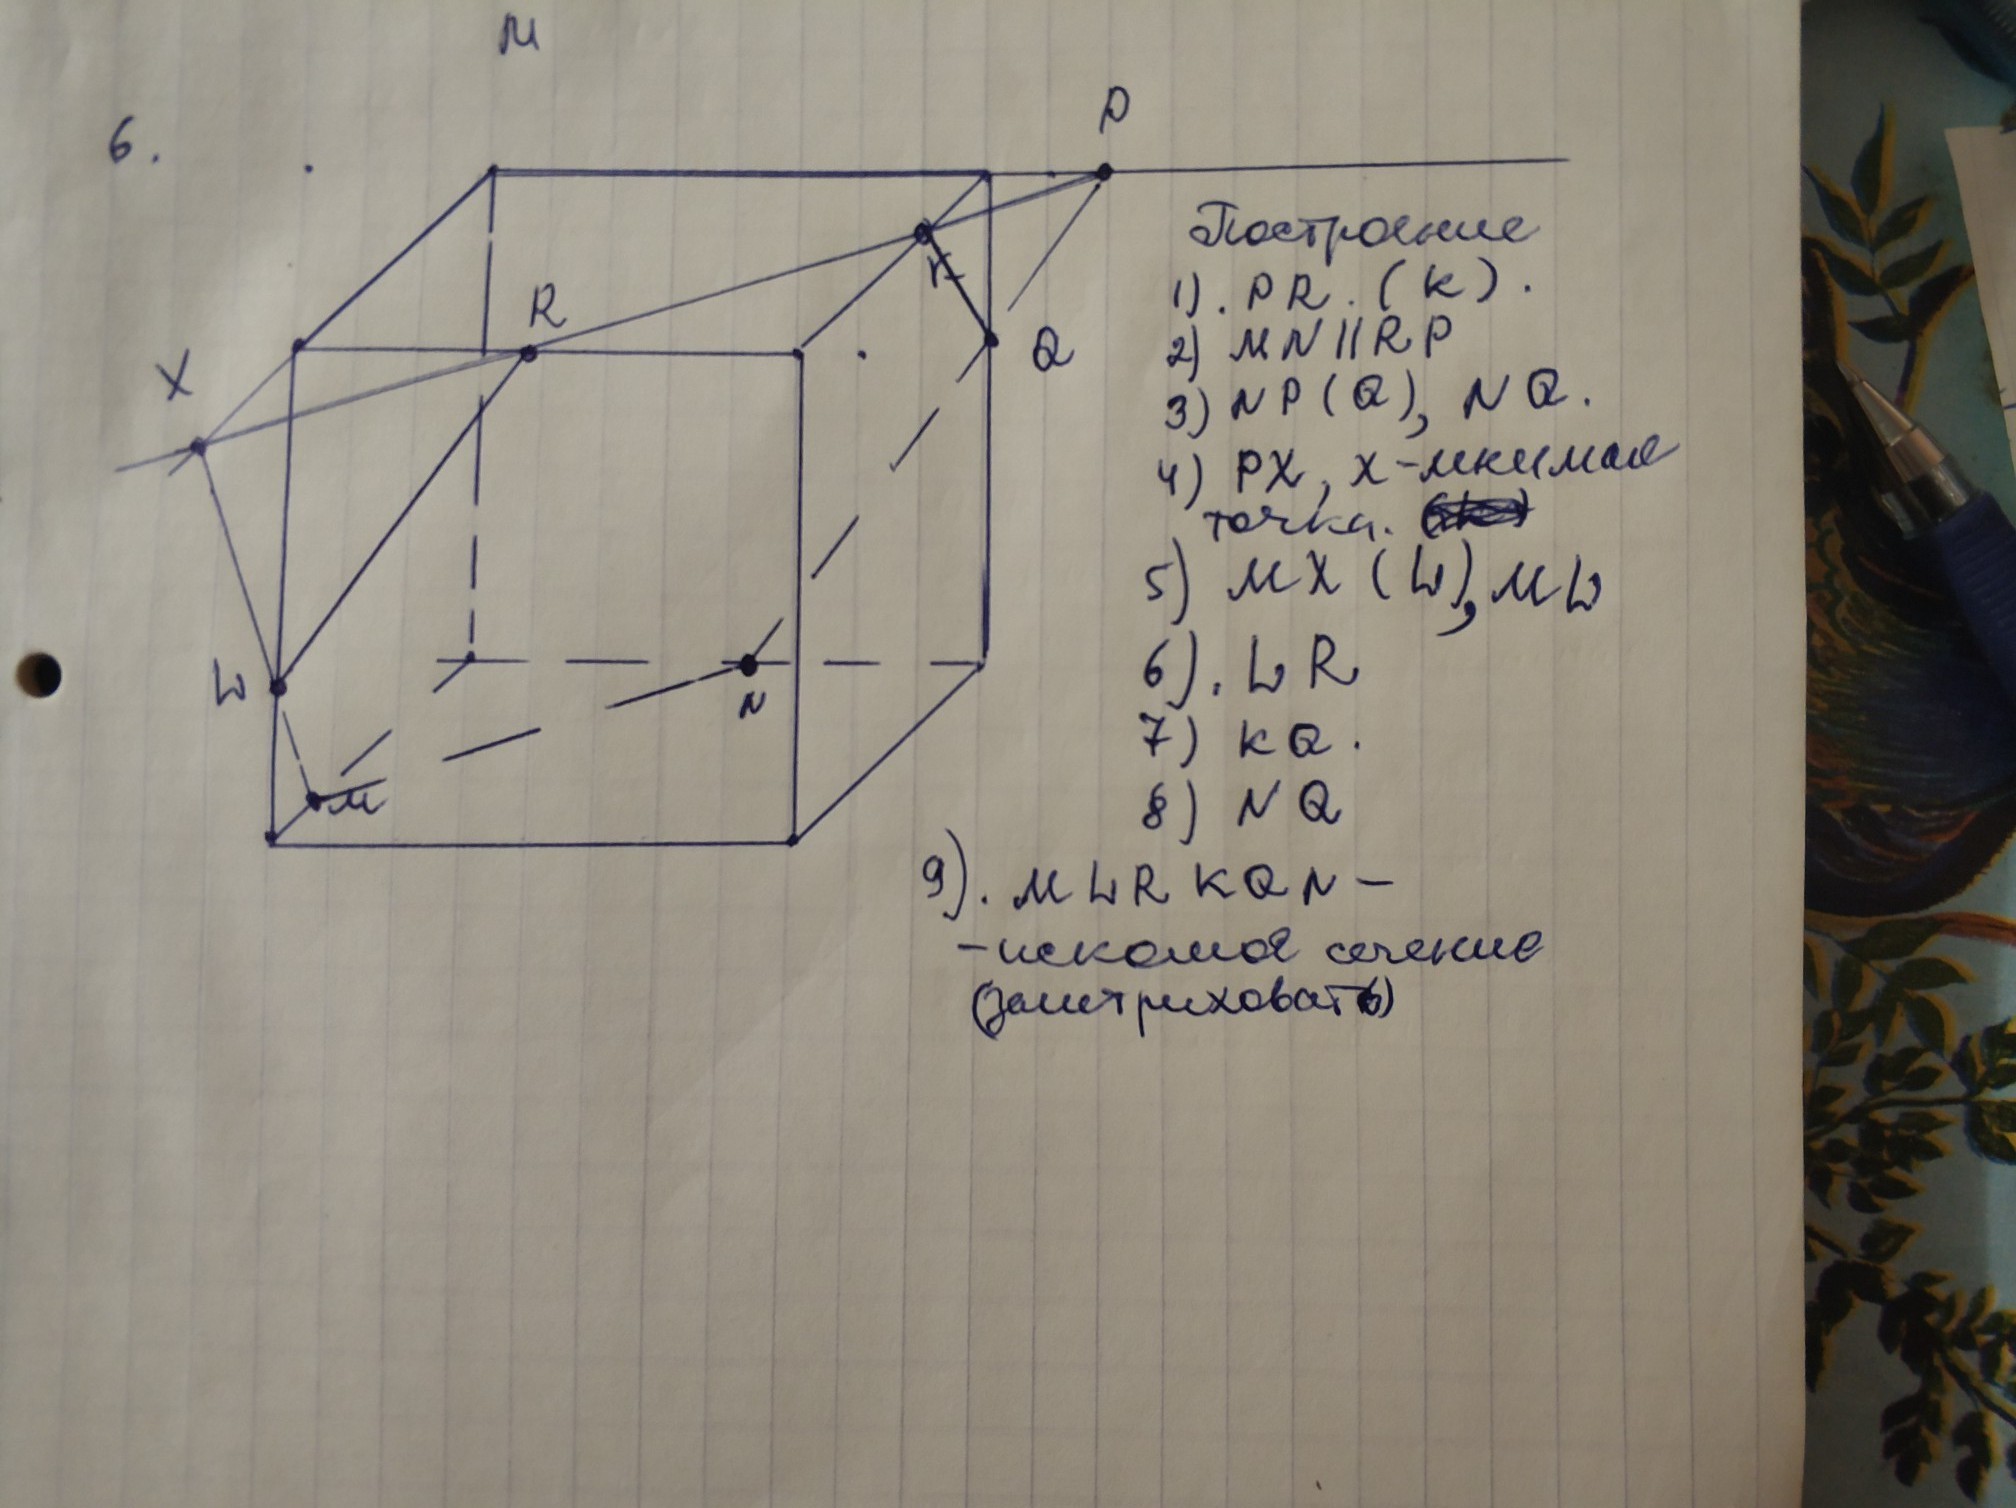 М
6.
P
X
R
K
Q
W
N
M
Построение
1). PR. (K).
2) MN || RP
3) NP (Q), NQ.
4) PX, X - мнимая
точка.
5) MX (W), MW
6). WR
7) KQ.
8) NQ
9). MWRKQN -
- искомое сечение
(заштриховать)